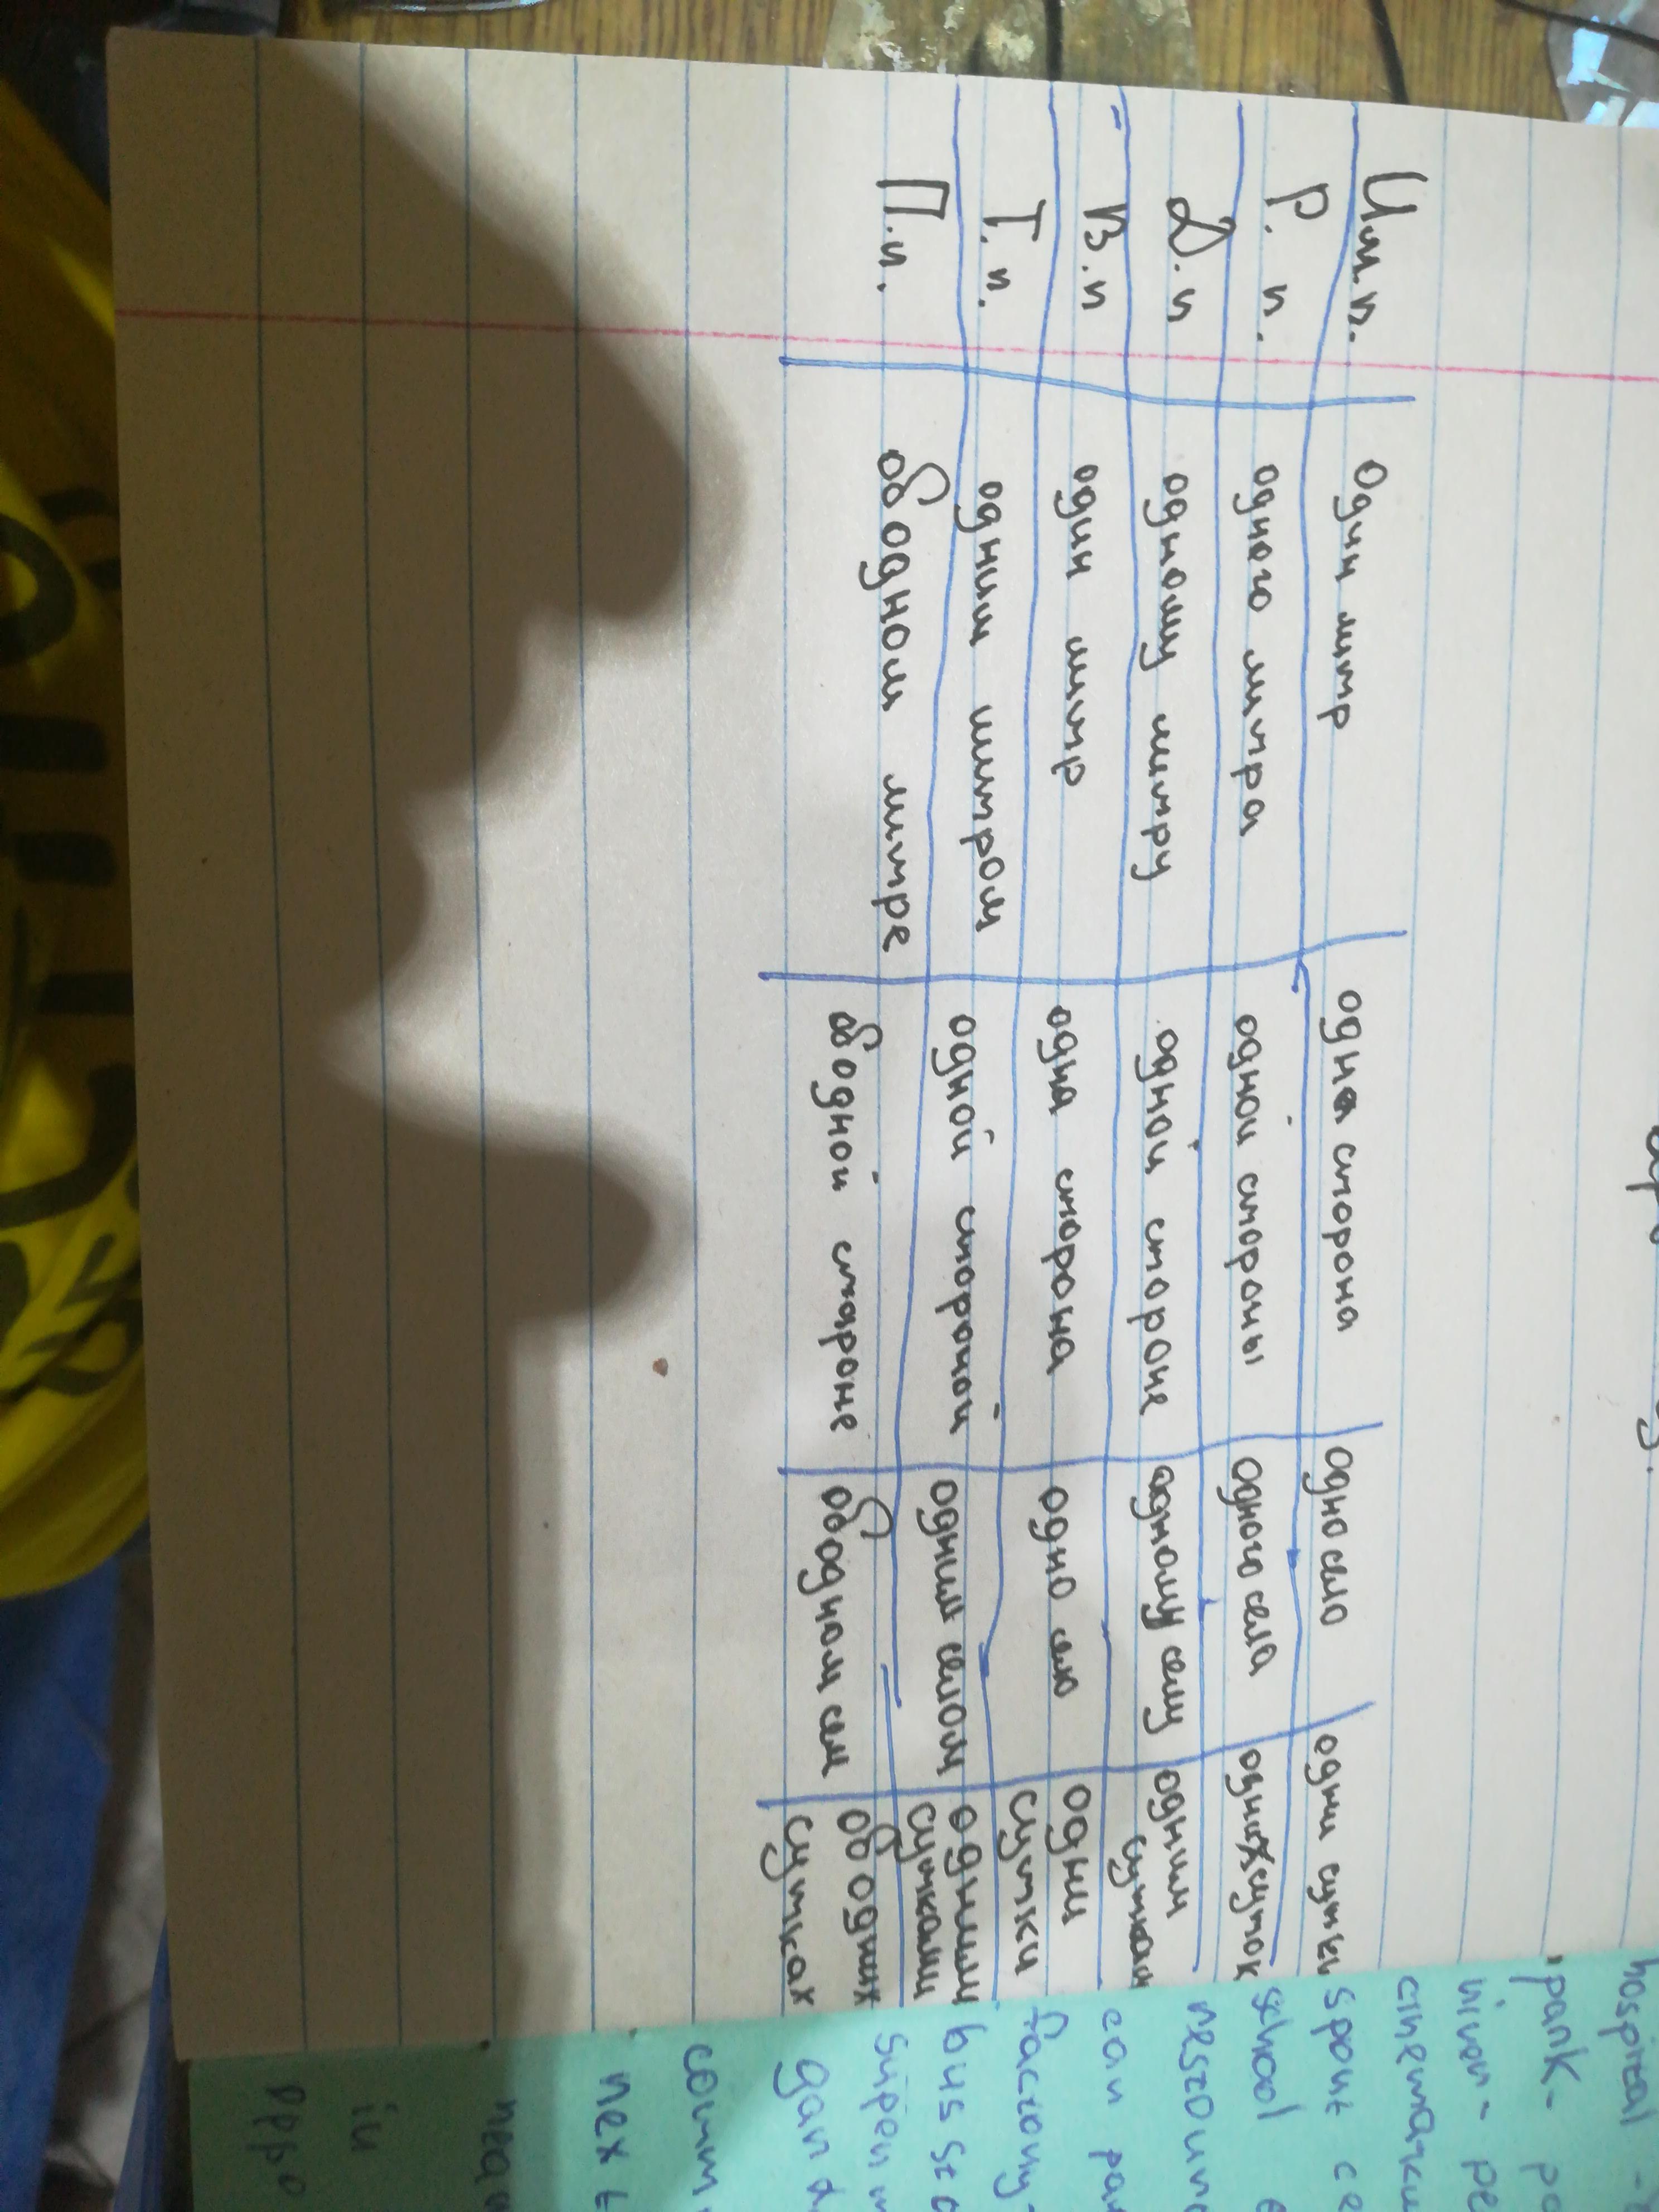 Им.п. Один литр одна сторона одно село одни сутки
Р. п. одного литра одной стороны одного села одних суток
Д.п одному литру одной стороне одному селу одним суткам
В.п один литр одна сторона одно село одни сутки
Т.п. одним литром одной стороной одним селом одними сутками
П.п. об одном литре об одной стороне об одном сел об одних сутках
hospital -
park -
cinema
sport ce
school
can pa
factory-
bus sto
superm
gard
comm
next
nea
in